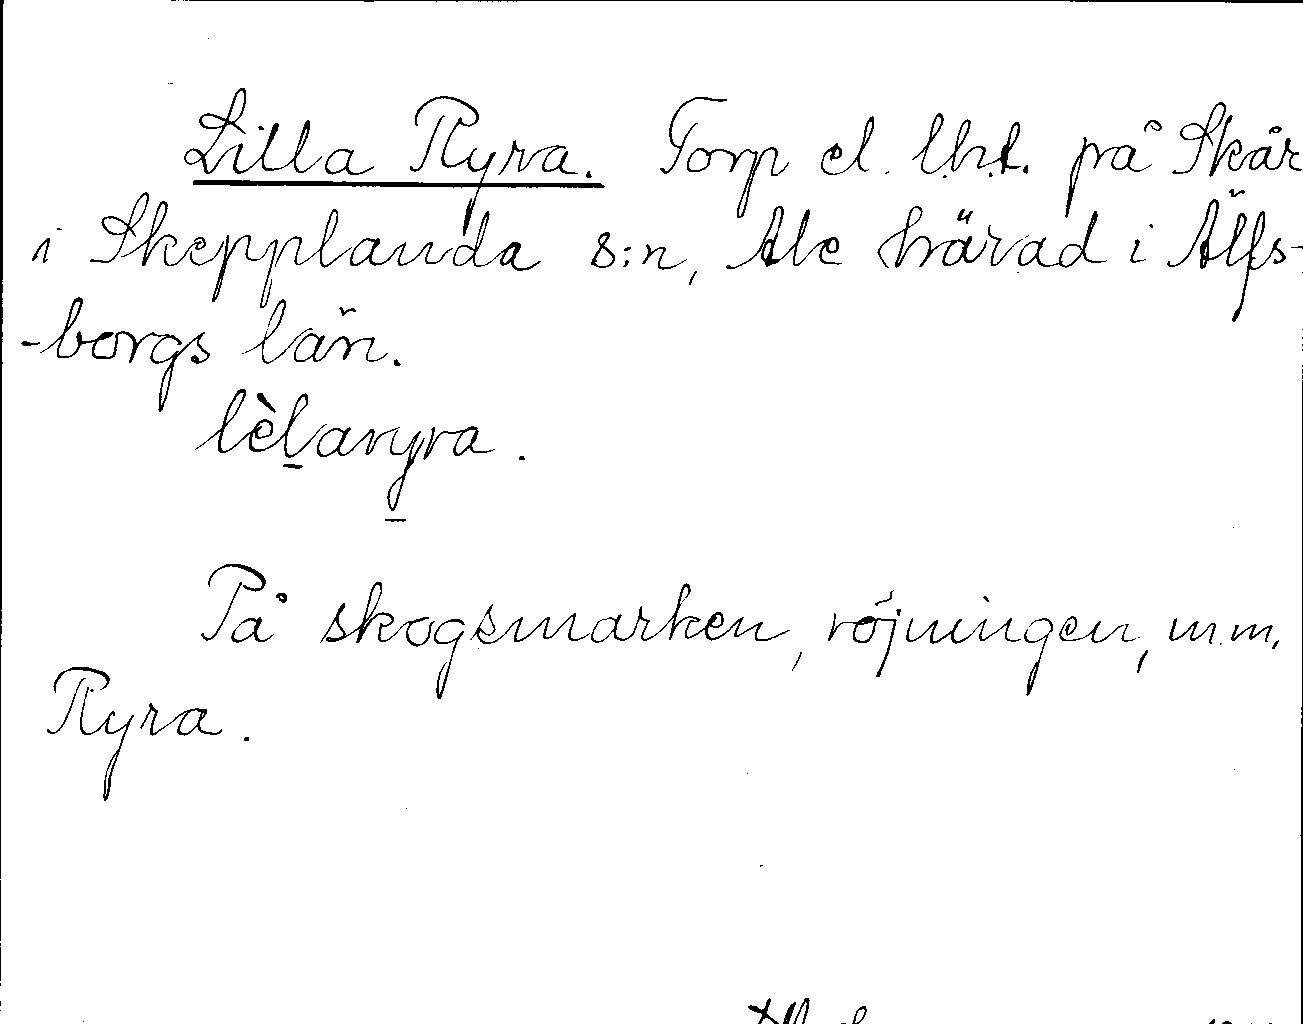 Lilla Ryra. Torp el. lht. på Skår
i Skepplanda s:n, Ale härad i Älfs-
-borgs län.
lèlaryra.
På skogsmarken, röjningen, m.m.
Ryra.